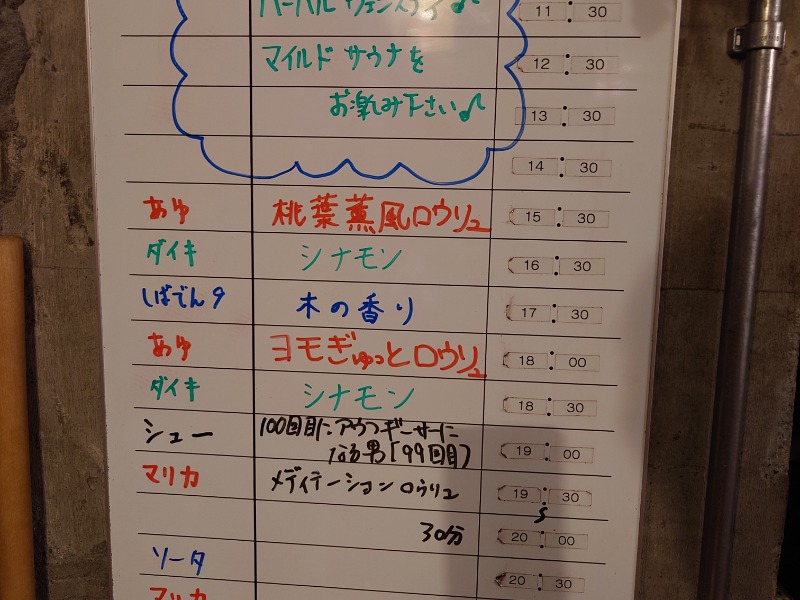 11:30
マイルド サウナを 12:30
お楽しみ下さい♪ 13:30
14:30
あゆ 桃葉薫風ロウリュ 15:30
ダイキ シナモン 16:30
しばでん9 木の香り 17:30
あゆ ヨモぎゅっとロウリュ 18:00
ダイキ シナモン 18:30
シュー 100回目にアウフギーサーに 19:00
なる男[99回目]
マリカ メディテーションロウリュ 19:30
30分 20:00
ソータ 20:30